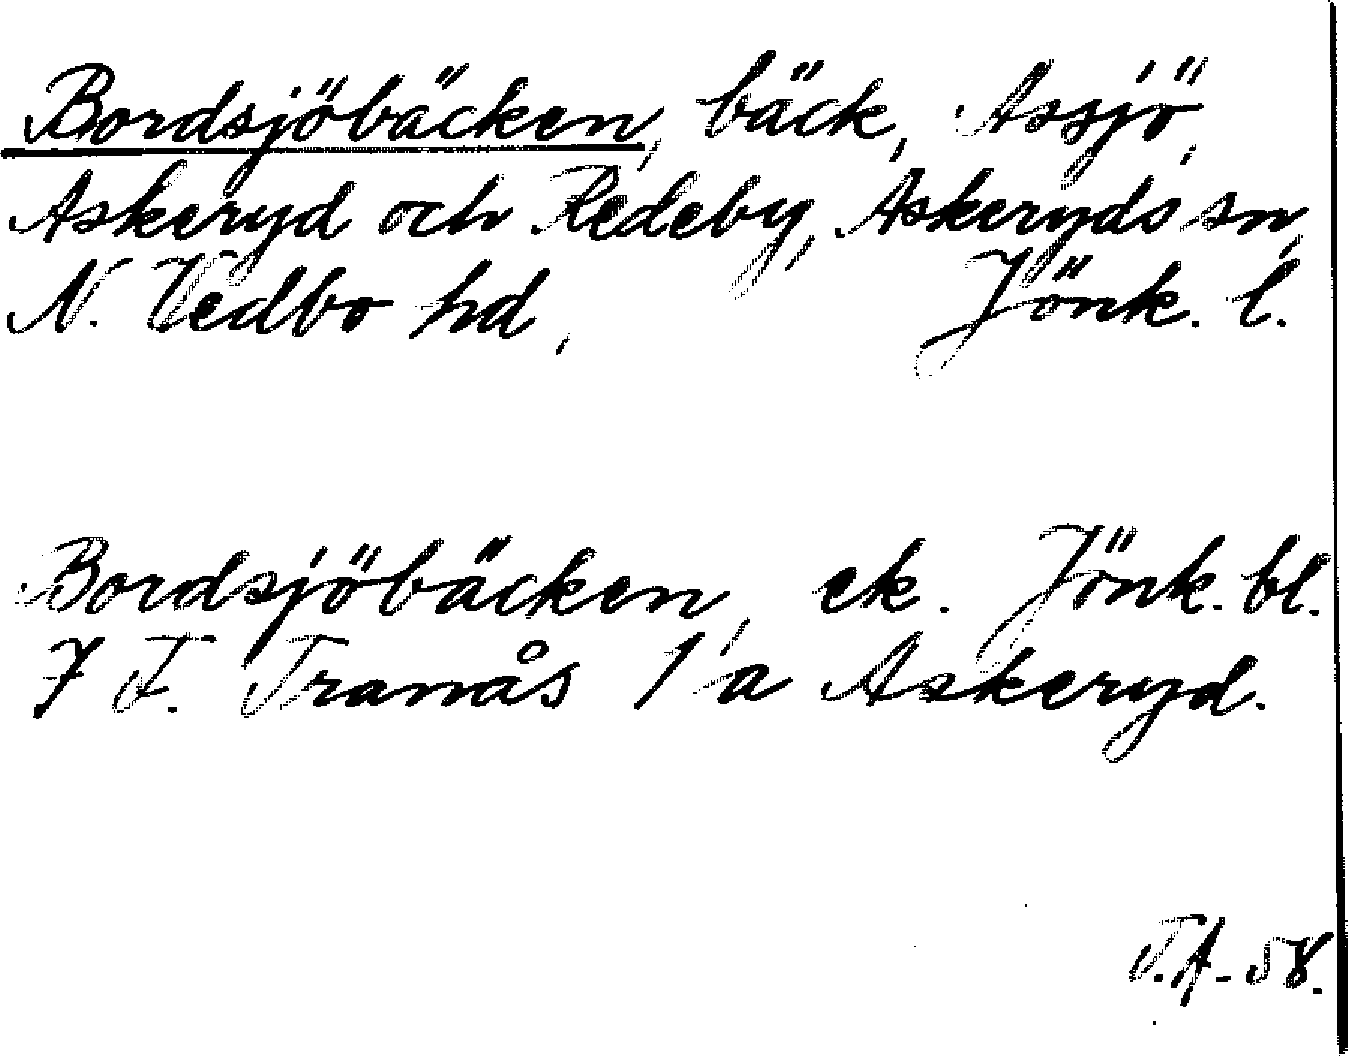 Bordsjöbäcken, bäck, Assjö,
Askeryd och Redeby, Askeryds sn,
N. Vedbo hd, Jönk. l.
Bordsjöbäcken, ek. Jönk. bl.
7 F. Tranås 1 a Askeryd.
T.A. -58.